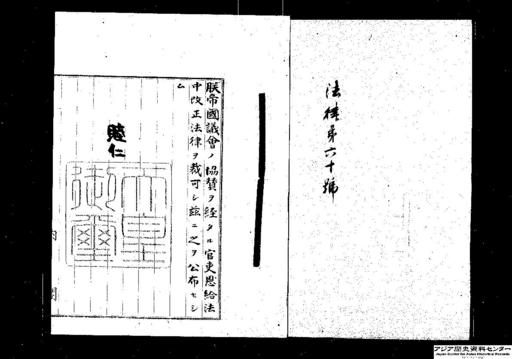 法律第六十號
朕帝國議會ノ協贊ヲ經タル官吏恩給法
中改正法律ヲ裁可シ茲ニ之ヲ公布セシ
ム
睦仁
天皇御璽
内閣
アジア歴史資料センター
Japan Center for Asian Historical Records